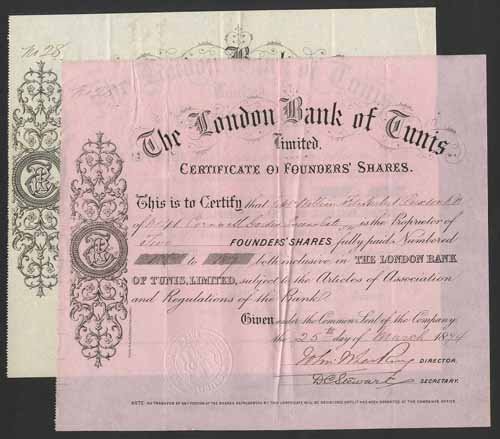 No 28
The London Bank of Tunis
Limited.
CERTIFICATE OF FOUNDERS' SHARES.
This is to Certify that William
of Cornwall Gardens is the Proprietor of
Five FOUNDERS' SHARES fully paid, Numbered
to both inclusive in THE LONDON BANK
OF TUNIS, LIMITED, subject to the Articles of Association
and Regulations of the Bank
Given under the Common Seal of the Company,
the 25th day of March 1874
John DIRECTOR.
D C Stewart SECRETARY.
NOTE: NO TRANSFER OF ANY PORTION OF THE SHARES REPRESENTED BY THIS CERTIFICATE WILL BE REGISTERED UNTIL IT HAS BEEN DEPOSITED AT THE COMPANY'S OFFICE.